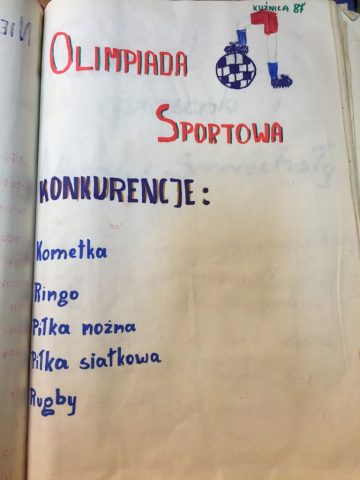 KUŹNICA 87
OLIMPIADA
SPORTOWA
KONKURENCJE:
Kometka
Ringo
Piłka nożna
Piłka siatkowa
Rugby